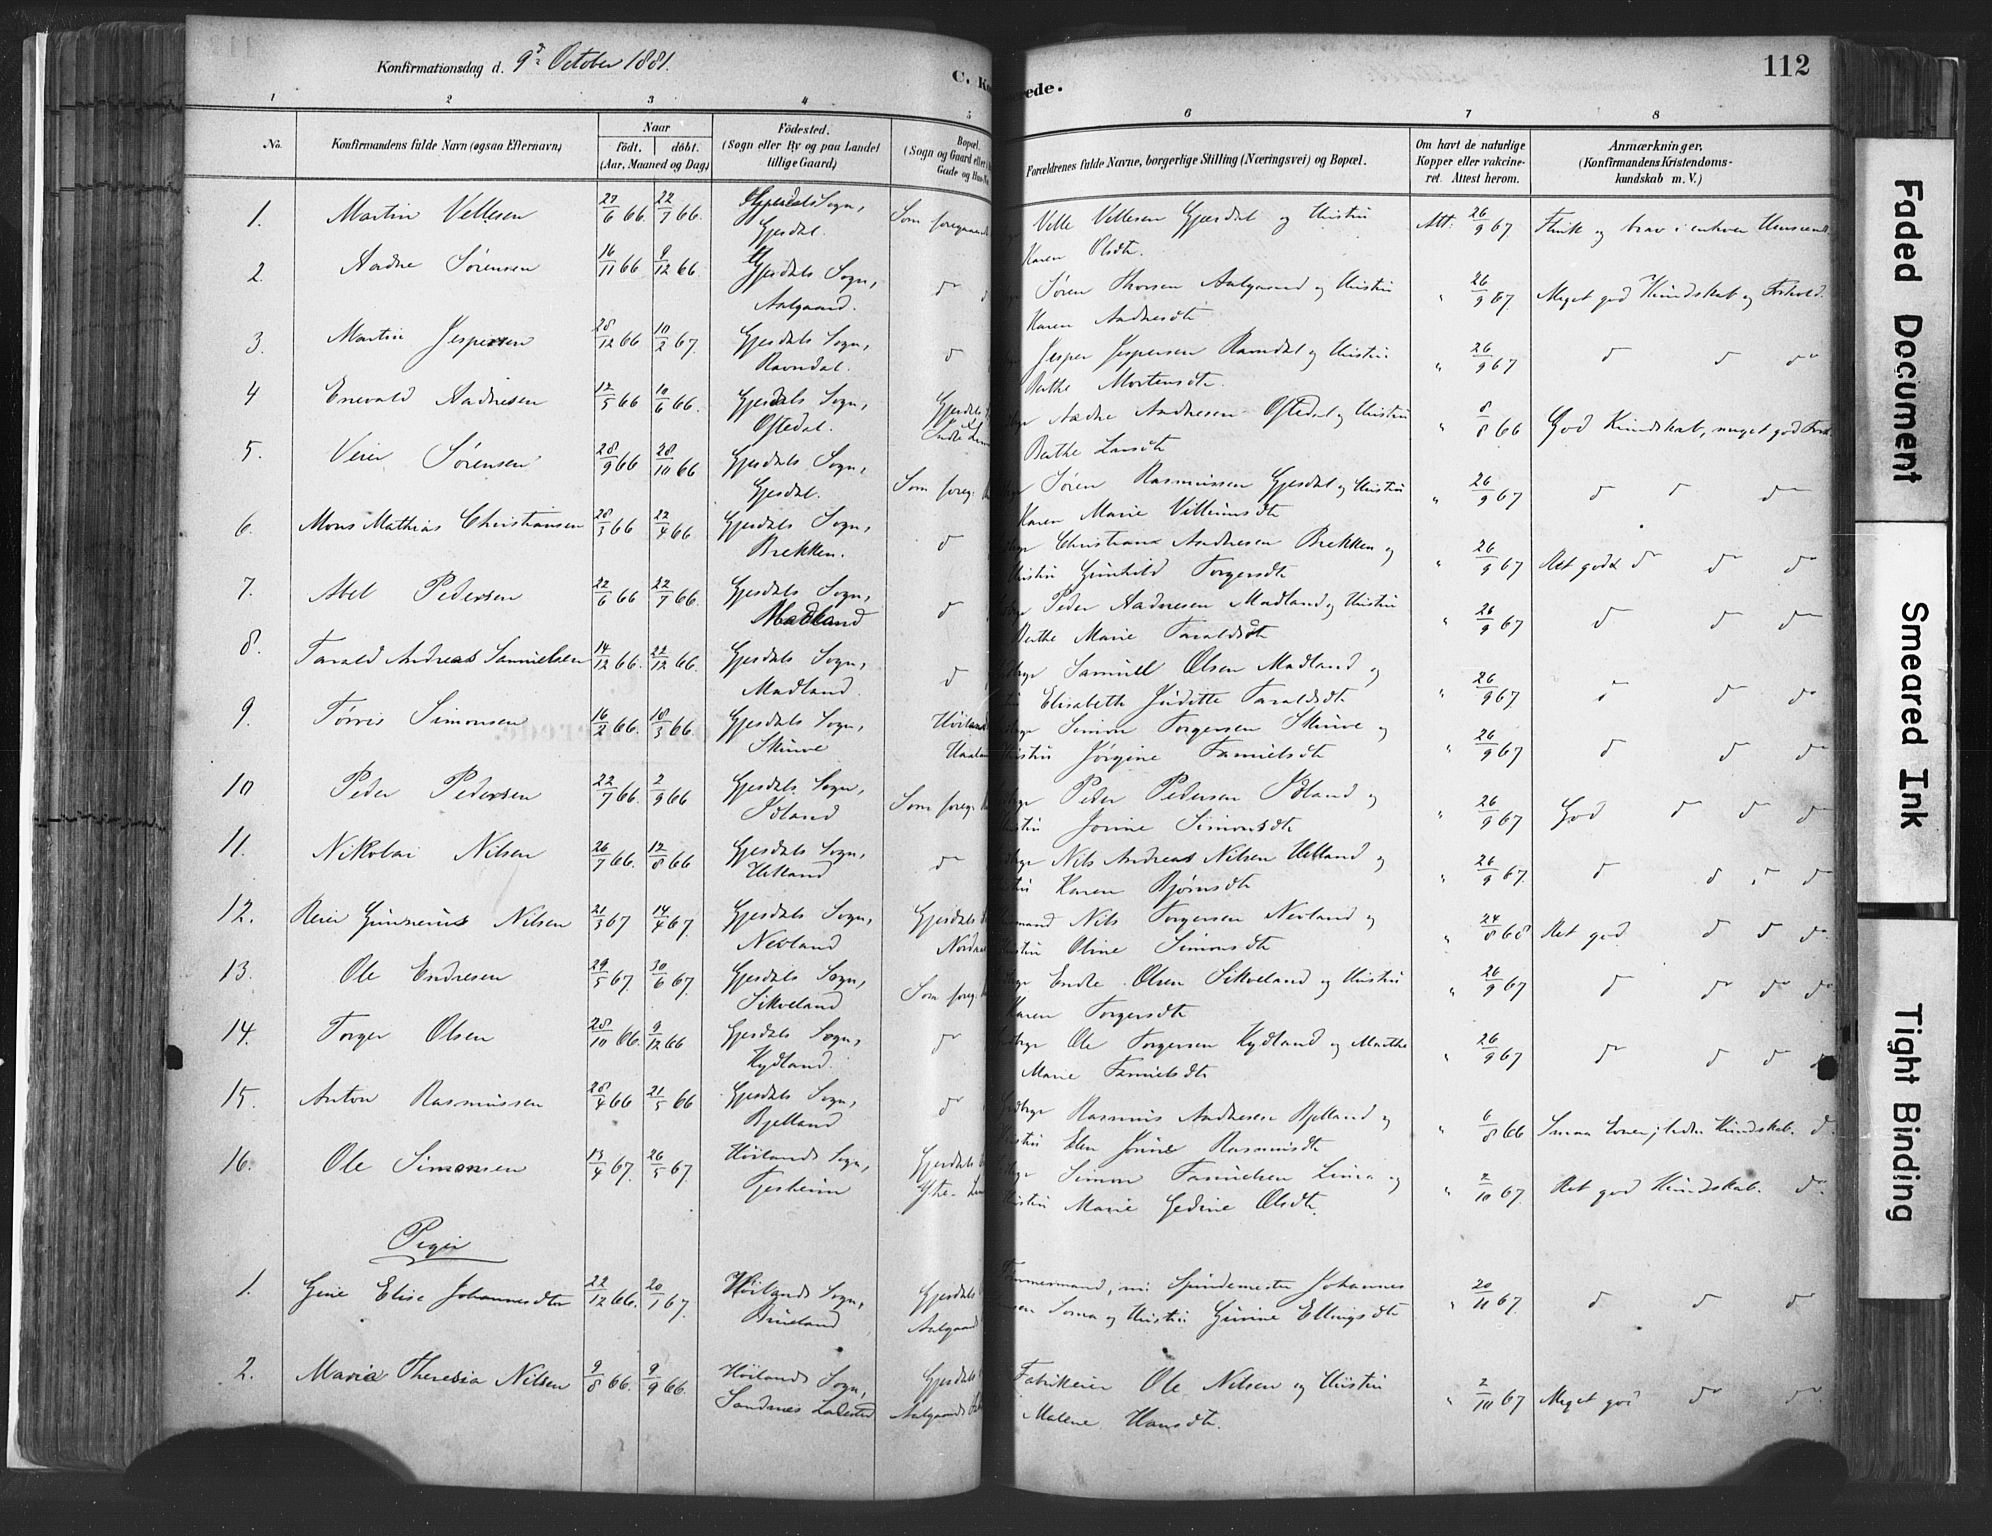 Konfirmationsdag d. 9de October 1881.
C. Ko
rede.
112
1 2 3 4 5 6 7 8
No.
Konfirmandens fulde Navn (ogsaa Efternavn)
Naar
födt. döbt.
(Aar, Maaned og Dag)
Födested.
(Sogn eller By og paa Landet
tillige Gaard)
Bopæl.
(Sogn og Gaard eller
Gade og Hus-No
Forældrenes fulde Navne, borgerlige Stilling (Næringsvei) og Bopæl.
Om havt de naturlige
Kopper eller vakcine-
ret. Attest herom.
Anmærkninger.
(Konfirmandens Kristendoms-
kundskab m. V.)
1. Martin Vellesen 27/6 66. 22/7 66. Gjesdals Sogn, Som foregaaende Velle Vellesen Gjesdal og Hustru Att. 26/9 67 Flink og brav i enhver Henseende
Gjesdal. Karen Olsdtr.
2. Aadne Sörensen 16/11 66 9/12 66. Gjesdals Sogn, do Sören Thorsen Aalgaard og Hustru " 26/9 67. Meget god Kundskab og Forhold.
Aalgaard. Karen Aadnesdtr
3. Martin Jespersen 28/12 66 10/2 67. Gjesdals Sogn, do Jesper Jespersen Ravndal og Hustru " 26/9 67 do do do
Ravndal. Berthe Mortensdtr.
4 Enevald Aadnesen 12/5 66 10/6 66. Gjesdals Sogn, Gjesdals Aadne Aadnesen Oftedal og Hustru " 8/8 66 God Kundskab, meget god Forh.
Oftedal. Berthe Larsdtr
5. Veier Sörensen 28/9 66 28/10 66 Gjesdals Sogn, Som foreg. Sören Rasmussen Gjesdal og Hustru " 26/9 67 do do do
Gjesdal. Karen Marie Villumsdtr
6. Mons Mathias Christiansen 28/3 66 22/4 66 Gjesdals Sogn, do Christian Aadnesen Brekken og " 26/9 67 Ret god do do do
Brekken. Hustru Gunhild Torgersdtr
7. Abel Pedersen 22/6 66 22/7 66. Gjesdals Sogn, do Peder Aadnesen Madland og Hustru " 26/9 67 do do do
Madland Berthe Marie Taraldsdtr
8. Tarald Andreas Samuelsen 14/12 66. 22/12 66. Gjesdals Sogn, do Samuel Olsen Madland og " 26/9 67 do do do
Madland. Elisabeth Juditte Taraldsdtr
9. Törris Simonsen 16/2 66. 18/3 66 Gjesdals Sogn, Höiland Simon Torgersen Skurve og " 26/9 67 do do do
Skurve Hustru Jörgine Tamielsdtr
10 Peder Pedersen 22/7 66. 2/9 66 Gjesdals Sogn, Som foreg. Peder Pedersen og " 26/9 67 God do do do
Hustru Jorine Simonsdtr
11. Nikolai Nilsen 26/7 66. 12/8 66 Gjesdals Sogn, do Nils Andreas Nilsen Helland og " 26/9 67. do do do do
Helland Hustru Karen Bjørnsdtr
12. Reier Gunnerius Nilsen 21/3 67 14/4 67. Gjesdals Sogn, Gjesdals Nils Torgersen Nevland og " 24/8 68 Ret god do do do
Nevland Hustru Oline Simonsdtr
13. Ole Endresen 29/5 67. 30/6 67. Gjesdals Sogn, Som foreg. Endre Olsen Sikveland og Hustru " 26/9 67 do do do do
Sikveland Karen Torgersdtr
14. Torger Olsen 28/10 66. 9/12 66 Gjesdals Sogn, do Ole Torgersen Kydland og Marthe " 26/9 67 do do do do
Kydland. Marie Tamielsdtr
15. Anton Rasmussen 28/4 66 21/5 66 Gjesdals Sogn, do Rasmus Andresen Bjelland og " 6/8 66 Smaa Evner, Kundskab. do
Bjelland Hustru Elen Jorine Rasmusdtr
16. Ole Simonsen 13/4 67. 26/5 67. Höilands Sogn, Gjesdals Simon Tamielsen Lima og " 2/10 67. Ret god Kundskab. do
Tjesheim Hustru Marie Gedine Olsdtr.
Piger
1. Gine Elise Johannesdtr 22/12 66. 20/1 67. Höilands Sogn, Gjesdals Tömmermand, Spindemester Johannes " 20/11 67. do do do
Bueland Aalgaard Soma og Hustru Gurine Ellingsdtr
2. Maria Theresia Nilsen 9/8 66. 9/9 66. Höilands Sogn, Gjesdals Fabrikeier Ole Nilsen og Hustru " 2/10 67 Meget god do do
Sandnes Ladested Aalgaards Malene Hansdtr.
Faded Document
Smeared Ink
Tight Binding